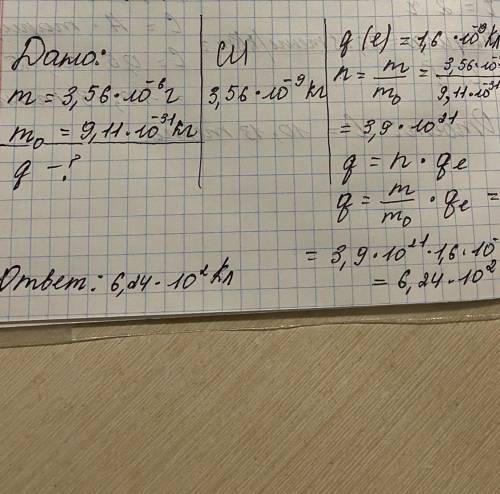 Дано:
m = 3,56·10⁻⁶г
m₀ = 9,11·10⁻³¹кг
q -?
СИ
3,56·10⁻⁹кг
q(e) = 1,6·10⁻¹⁹Кл
n = m/m₀ = 3,56·10⁻/9,11·10⁻³¹
= 3,9·10²¹
q = n·qₑ
q = m/m₀ · qₑ =
= 3,9·10²¹·1,6·10⁻
= 6,24·10²
Ответ: 6,24·10²Кл